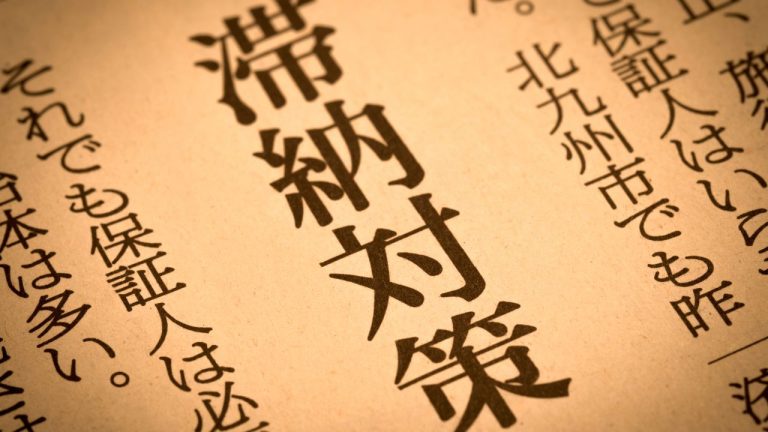 、施
も保証人はい
。北九州市でも昨
滞納対策
それでも保証人は必
体は多い。